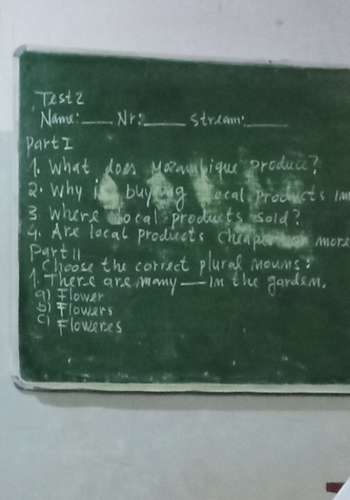 Test 2
Name:____ Nr:____ Stream:____
Part I
1. What does Mozambique produce?
2. Why is buying local products im
3 Where local products sold?
4. Are local products cheaper more
Part II
Choose the correct plural nouns:
1. There are many ___ in the garden.
a) Flower
b) Flowers
c) Floweres